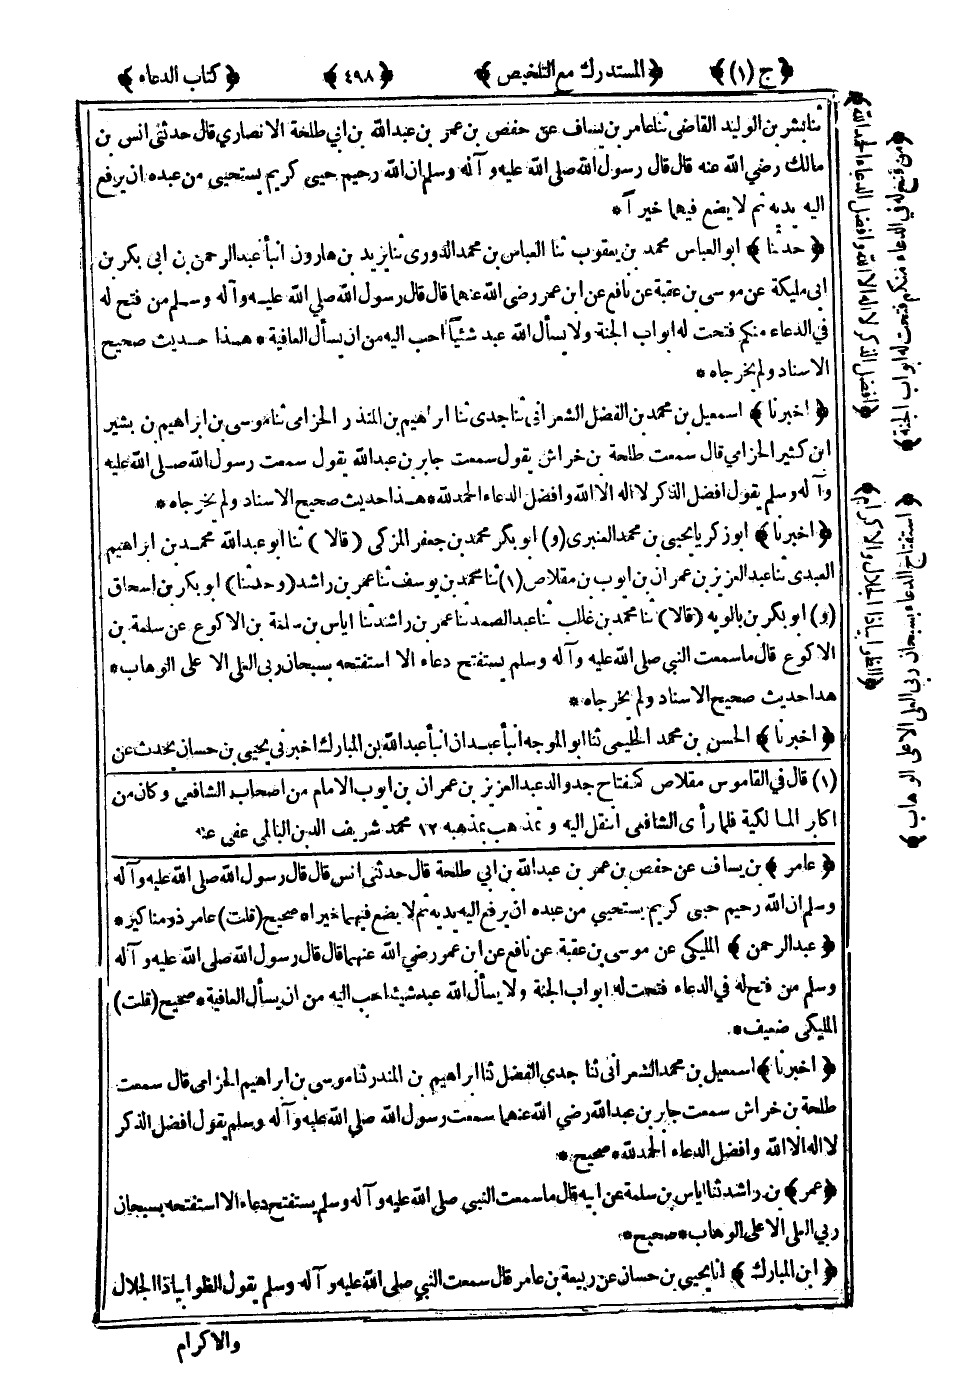 ﴿ ج (١) ﴾ ﴿ المستدرك مع التلخيص ﴾ ﴿ ٤٩٨ ﴾ ﴿ كتاب الدعاء ﴾
ثنا بشر بن الوليد القاضي ثنا عامر بن يساف عن حفص بن عمر بن عبد الله بن ابي طلحة الانصاري قال حدثنى انس بن
مالك رضي الله عنه قال قال رسول الله صلى الله عليه وآله وسلم ان الله رحيم حيي كريم يستحيي من عبده ان يرفع
اليه يديه ثم لا يضع فيهما خيرا *
﴿ حدثنا ﴾ ابو العباس محمد بن يعقوب ثنا العباس بن محمد الدورى ثنا يزيد بن هارون انبأ عبد الرحمن بن ابى بكر بن
ابى مليكة عن موسى بن عقبة عن نافع عن ابن عمر رضى الله عنهما قال قال رسول الله صلي الله عليه وآله وسلم من فتح له
في الدعاء منكم فتحت له ابواب الجنة ولا يسأل الله عبد شئياً احب اليه من ان يسأل العافية * هذا حديث صحيح
الاسناد ولم يخرجاه *
﴿ اخبرنا ﴾ اسمعيل بن محمد بن الفضل الشعرانى ثنا جدى ثنا ابراهيم بن المنذر الحزامى ثنا موسى بن ابراهيم بن بشير
ابن كثير الحزامي قال سمعت طلحة بن خراش يقول سمعت جابر بن عبد الله يقول سمعت رسول الله صلى الله عليه
وآله وسلم يقول افضل الذكر لا اله الا الله وافضل الدعاء الحمد لله * هذا حديث صحيح الاسناد ولم يخرجاه *
﴿ اخبرنا ﴾ ابو زكريا يحيى بن محمد العنبرى (و) ابو بكر محمد بن جعفر المزكى (قالا) ثنا ابو عبد الله محمد بن ابراهيم
العبدى ثنا عبد العزيز بن عمران بن ايوب بن مقلاص (١) ثنا محمد بن يوسف ثنا عمر بن راشد (وحدثنا) ابو بكر بن اسحاق
(و) ابو بكر بن بالويه (قالا) ثنا محمد بن غالب ثنا عبد الصمد ثنا عمر بن راشد ثنا اياس بن سلمة بن الاكوع عن سلمة بن
الاكوع قال ما سمعت النبي صلى الله عليه وآله وسلم يستفتح دعاء الا استفتحه بسبحان ربى العلى الاعلى الوهاب *
هذا حديث صحيح الاسناد ولم يخرجاه *
﴿ اخبرنا ﴾ الحسن بن محمد الحليمى ثنا ابو الموجه انبأ عبدان انبأ عبد الله بن المبارك اخبرنى يحيى بن حسان يحدث عن
(١) قال في القاموس مقلاص كمفتاح جد والد عبد العزيز بن عمران بن ايوب الامام من اصحاب الشافعي وكان من
اكابر المالكية فلما رأى الشافعى انتقل اليه و تمذهب بمذهبه ١٢ محمد شريف الدين البالمى عفى عنه
﴿ عامر ﴾ بن يساف عن حفص بن عمر بن عبد الله بن ابي طلحة قال حدثنى انس قال قال رسول الله صلى الله عليه وآله
وسلم ان الله رحيم حيى كريم يستحيي من عبده ان يرفع اليه يديه ثم لا يضع فيهما خيرا * صحيح (قلت) عامر ذو مناكيز *
﴿ عبد الرحمن ﴾ المليكى عن موسى بن عقبة عن نافع عن ابن عمر رضى الله عنهما قال قال رسول الله صلى الله عليه وآله
وسلم من فتح له في الدعاء فتحت له ابواب الجنة ولا يسأل الله عبد شيئا احب اليه من ان يسأل العافية * صحيح (قلت)
المليكى ضعيف *
﴿ اخبرنا ﴾ اسمعيل بن محمد الشعرانى ثنا جدي الفضل ثنا ابراهيم بن المنذر ثنا موسى بن ابراهيم الحزامى قال سمعت
طلحة بن خراش سمعت جابر بن عبد الله رضي الله عنهما سمعت رسول الله صلي الله عليه وآله وسلم يقول افضل الذكر
لا اله الا الله وافضل الدعاء الحمد لله * صحيح *
﴿ عمر ﴾ بن راشد ثنا اياس بن سلمة عن ابيه قال ما سمعت النبي صلى الله عليه وآله وسلم يستفتح دعاء الا استفتحه بسبحان
ربي العلى الاعلى الوهاب * صحيح *
﴿ ابن المبارك ﴾ انا يحيى بن حسان عن ربيعة بن عامر قال سمعت النبي صلى الله عليه وآله وسلم يقول الظوا بياذا الجلال
والاكرام
﴿ من فتح له في الدعاء منكم فتحت له ابواب الجنة ﴾
﴿ افضل الذكر لا اله الا الله وافضل الدعاء الحمد لله ﴾
﴿ استفتاح الدعاء بسبحان ربى العلى الاعلى الوهاب ﴾
﴿ الظوا بياذا الجلال والاكرام ﴾